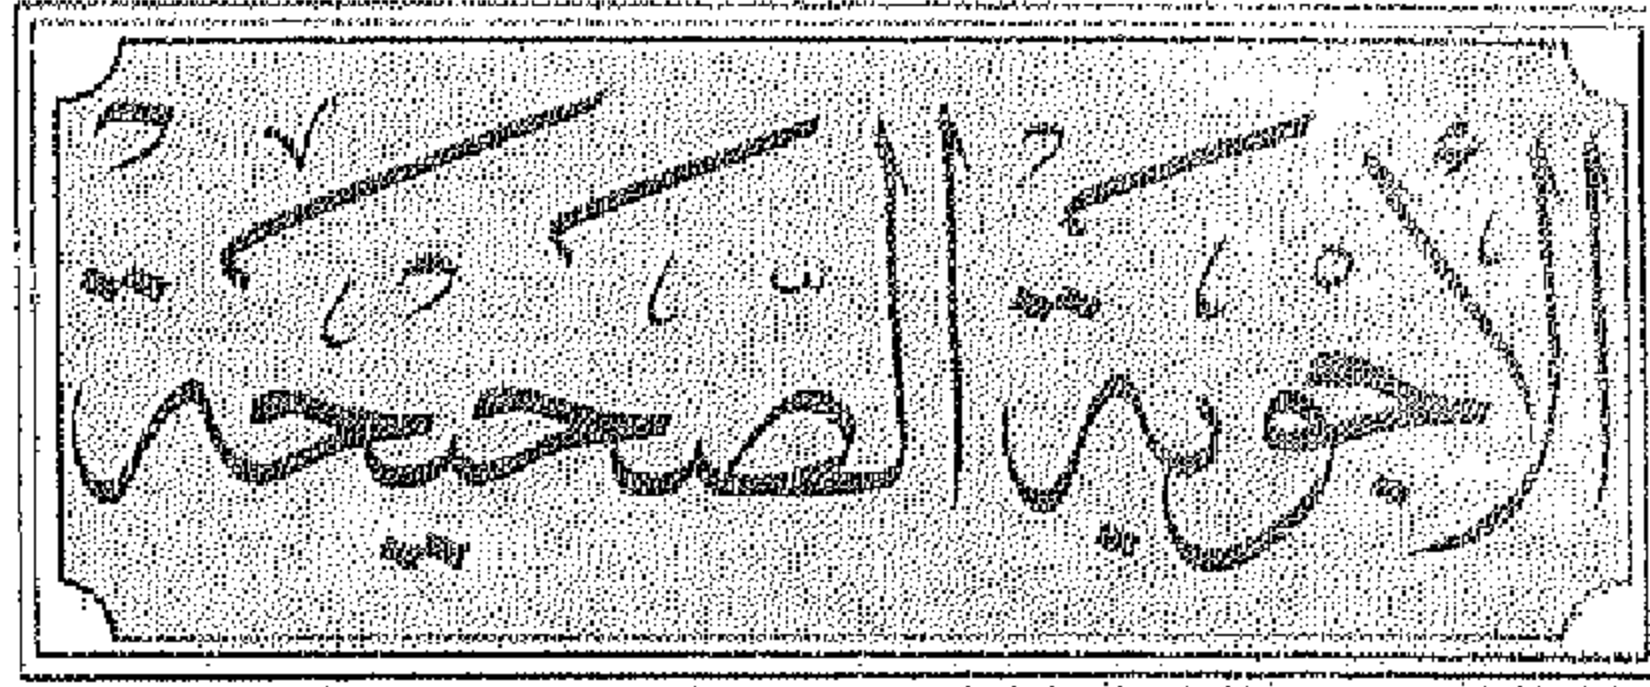 الأجوبة الصحيحة